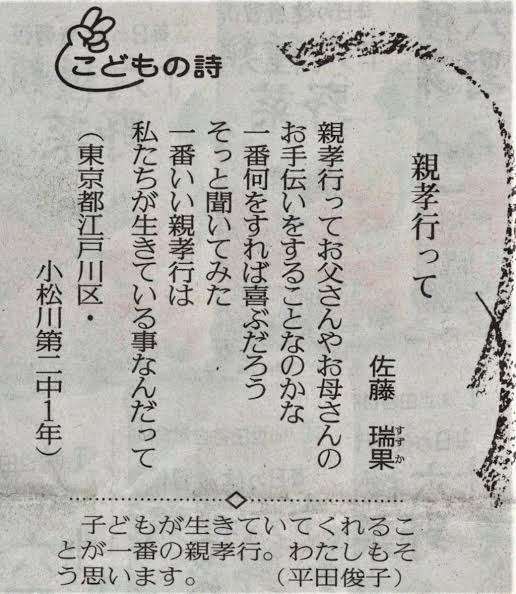 こどもの詩
親孝行って
佐藤 瑞果
すずか
親孝行ってお父さんやお母さんの
お手伝いをすることなのかな
一番何をすれば喜ぶだろう
そっと聞いてみた
一番いい親孝行は
私たちが生きている事なんだって
(東京都江戸川区・
小松川第二中1年)
子どもが生きていてくれるこ
とが一番の親孝行。わたしもそ
う思います。 (平田俊子)